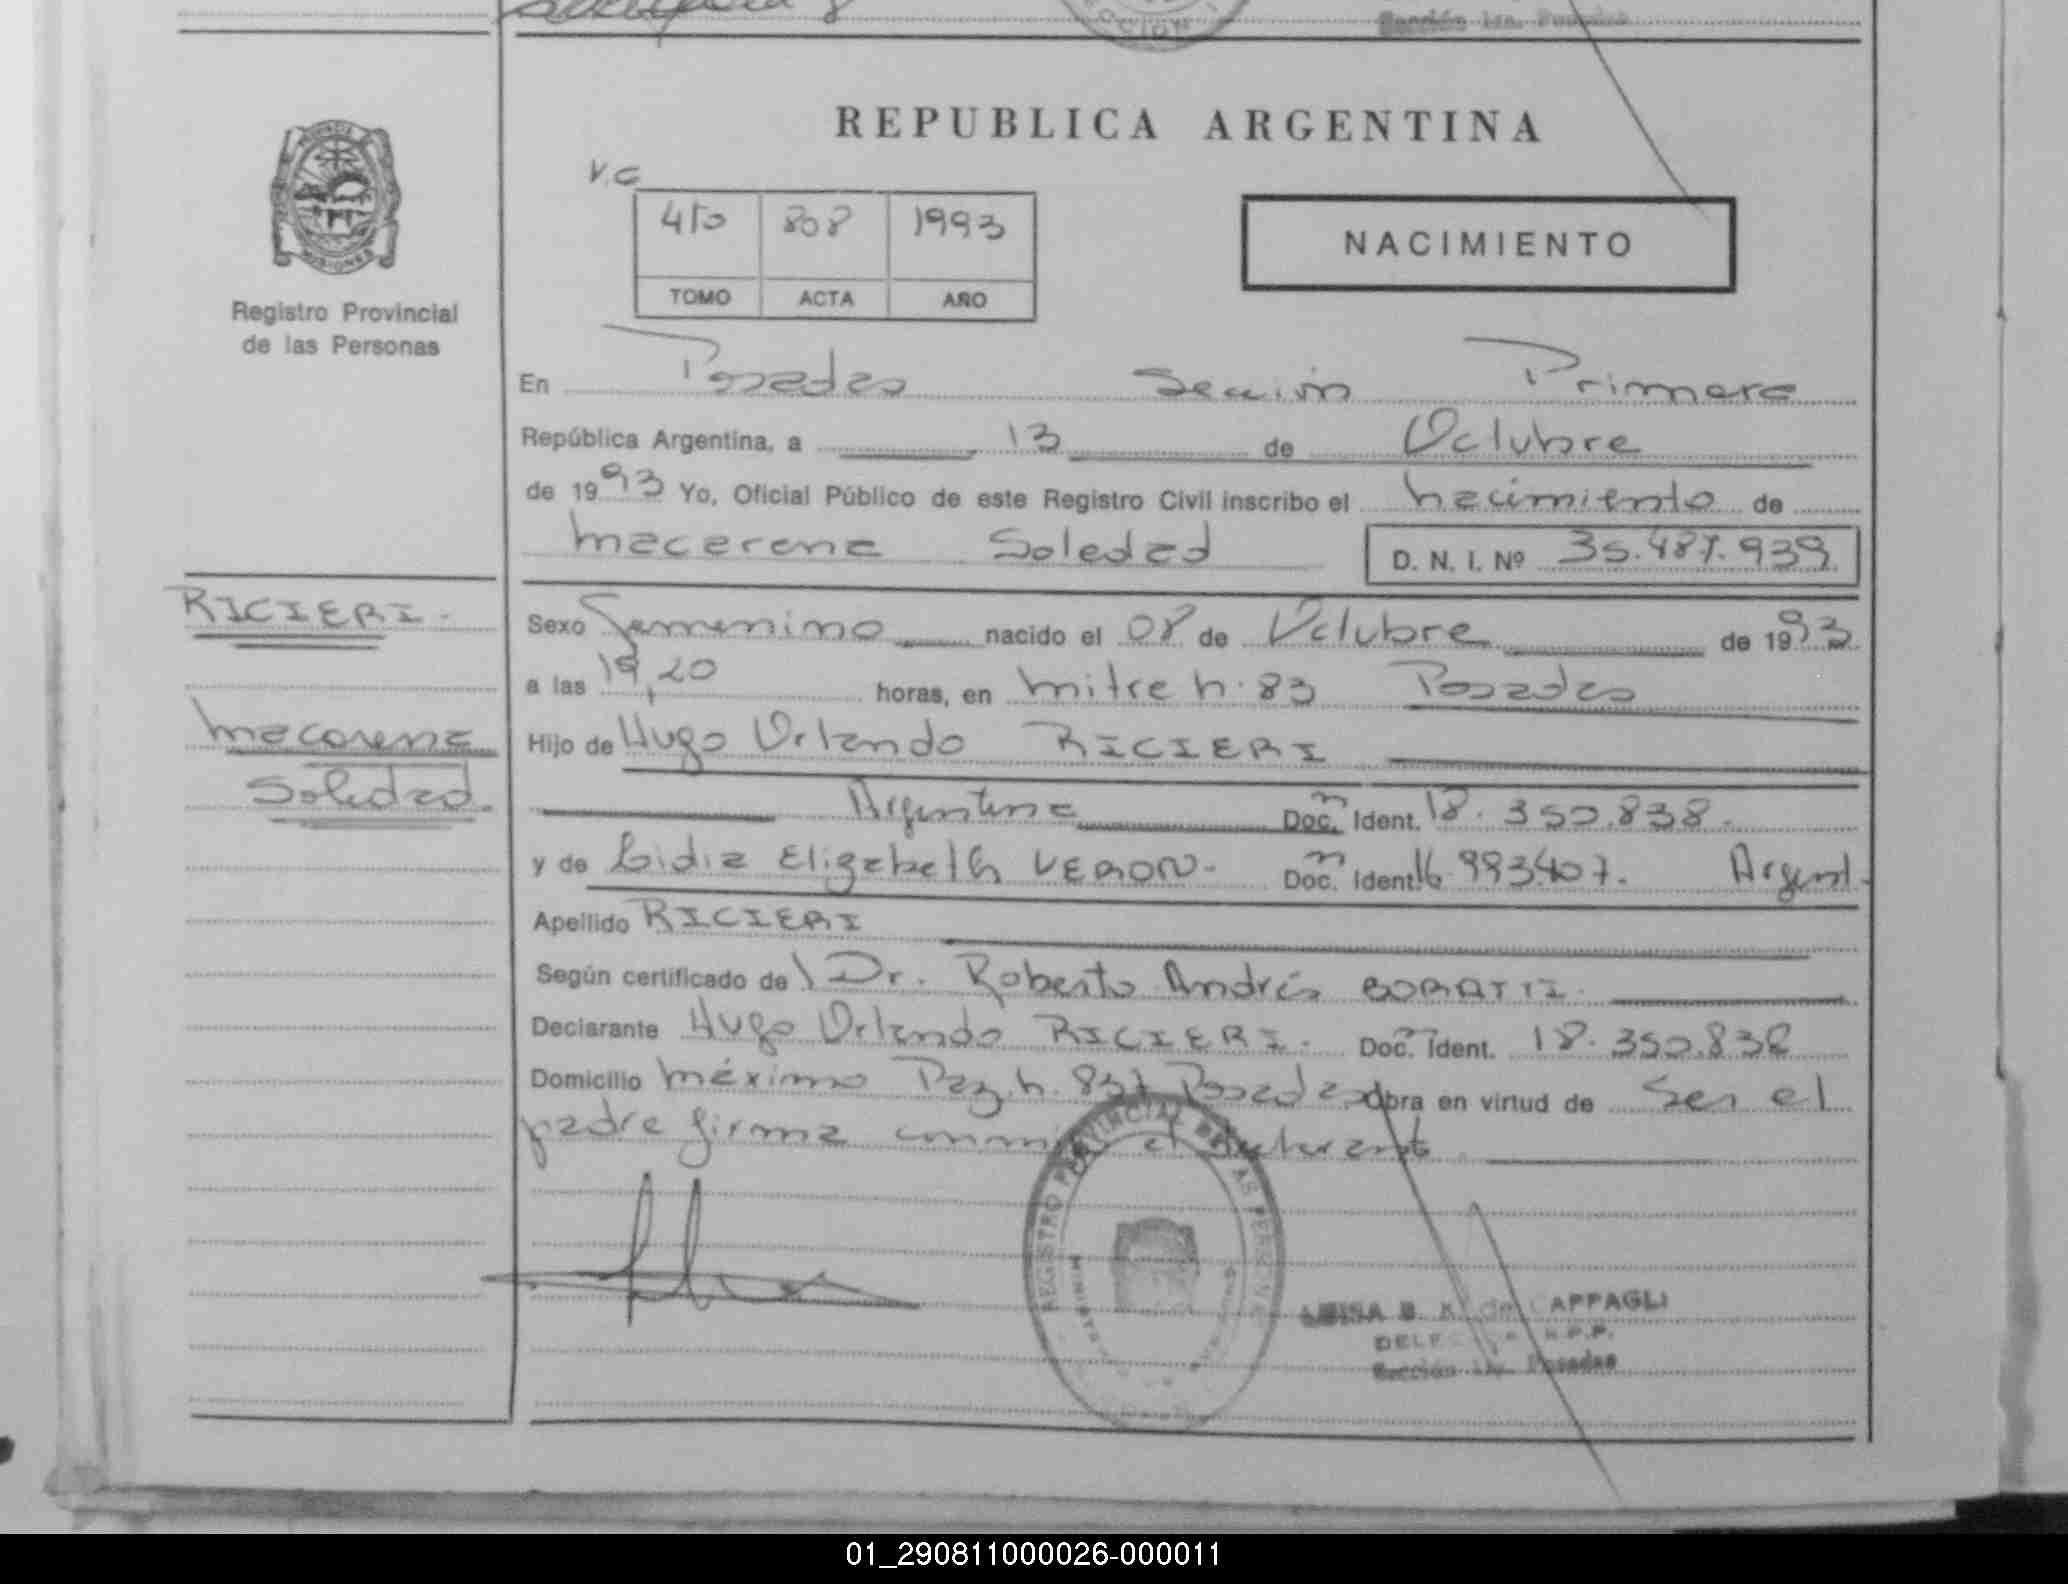 REPUBLICA ARGENTINA
V.C
450 808 1993
TOMO ACTA AÑO
NACIMIENTO
MISIONES
Registro Provincial
de las Personas
En Posadas Sección Primera
República Argentina, a 13 de Octubre
de 1993 Yo, Oficial Público de este Registro Civil inscribo el nacimiento de
Macarena Soledad D. N. I. Nº 35.487.939
RICIERI.
Macarena
Soledad.
Sexo Femenino nacido el 08 de Octubre de 1993
a las 19,20 horas, en Mitre n. 83 Posadas
Hijo de Hugo Orlando RICIERI
Argentina Doc. Ident. 18.350.838.
y de Lidia Elizabeth VERON. Doc. Ident. 16.993407. Argent.
Apellido RICIERI
Según certificado de Dr. Roberto Andrés BORATTI.
Declarante Hugo Orlando RICIERI. Doc. Ident. 18.350.838
Domicilio Máximo Paz n. 837 Posadas Obra en virtud de Ser el
padre firma conmigo el declarante
REGISTRO PROVINCIAL DE LAS PERSONAS
LUISA B. K. de CAPPAGLI
R.P.P.
Sección 1ra. Posadas
01_290811000026-000011